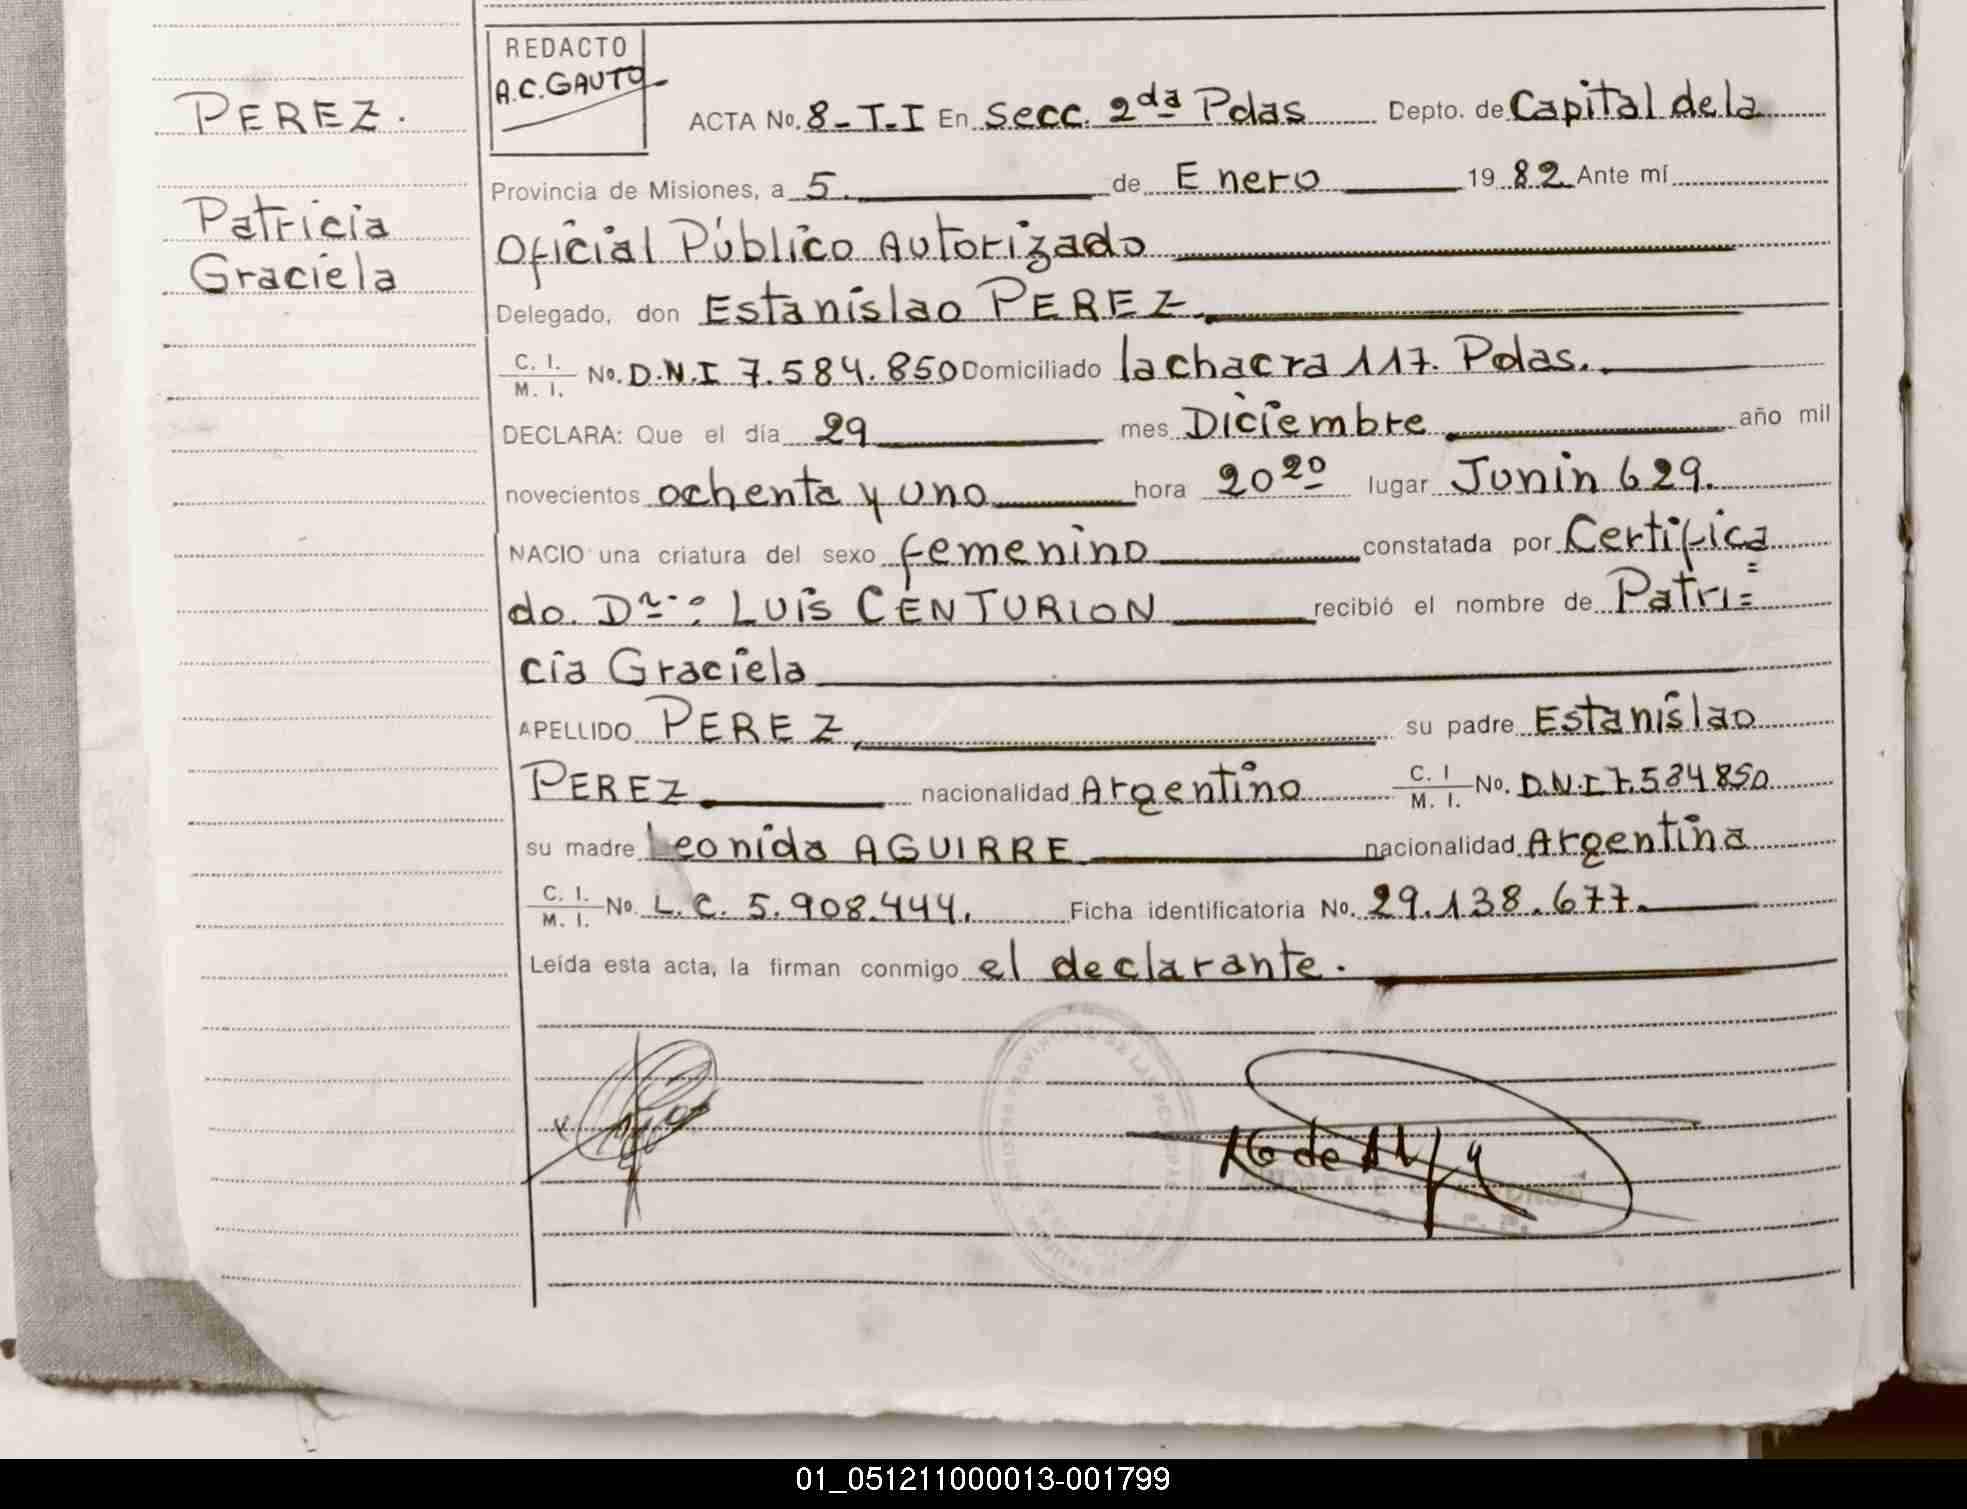 PEREZ.
Patricia
Graciela
REDACTO
A.C. GAUTO
ACTA No. 8-T-I En Secc. 2da Pdas Depto. de Capital de la
Provincia de Misiones, a 5. de Enero 1982 Ante mí
Oficial Público Autorizado
Delegado, don Estanislao PEREZ.
C. I. / M. I. No. D.N.I 7.584.850 Domiciliado la chacra 117. Pdas.
DECLARA: Que el día 29 mes Diciembre año mil
novecientos ochenta y uno hora 20 20 lugar Junin 629.
NACIO una criatura del sexo femenino constatada por Certifica=
do. Dr.: LUIS CENTURION recibió el nombre de Patri=
cia Graciela
APELLIDO PEREZ su padre Estanislao
PEREZ nacionalidad Argentino C. I / M. I. No. D.N.I 7.584850
su madre Leonida AGUIRRE nacionalidad Argentina
C. I. / M. I. No. L.C. 5.908.444. Ficha identificatoria No. 29.138.677.
Leída esta acta, la firman conmigo el declarante.
01_051211000013-001799